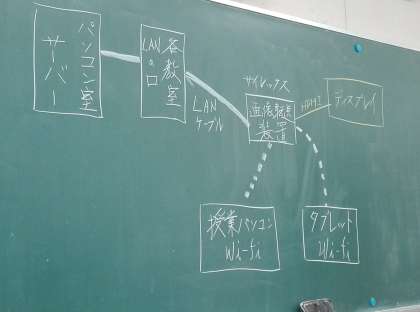 パソコン室
サーバー
各教室
LANの口
LAN
ケーブル
サイレックス
装置
HDMI
ディスプレイ
授業パソコン
Wi-fi
タブレット
Wi-fi